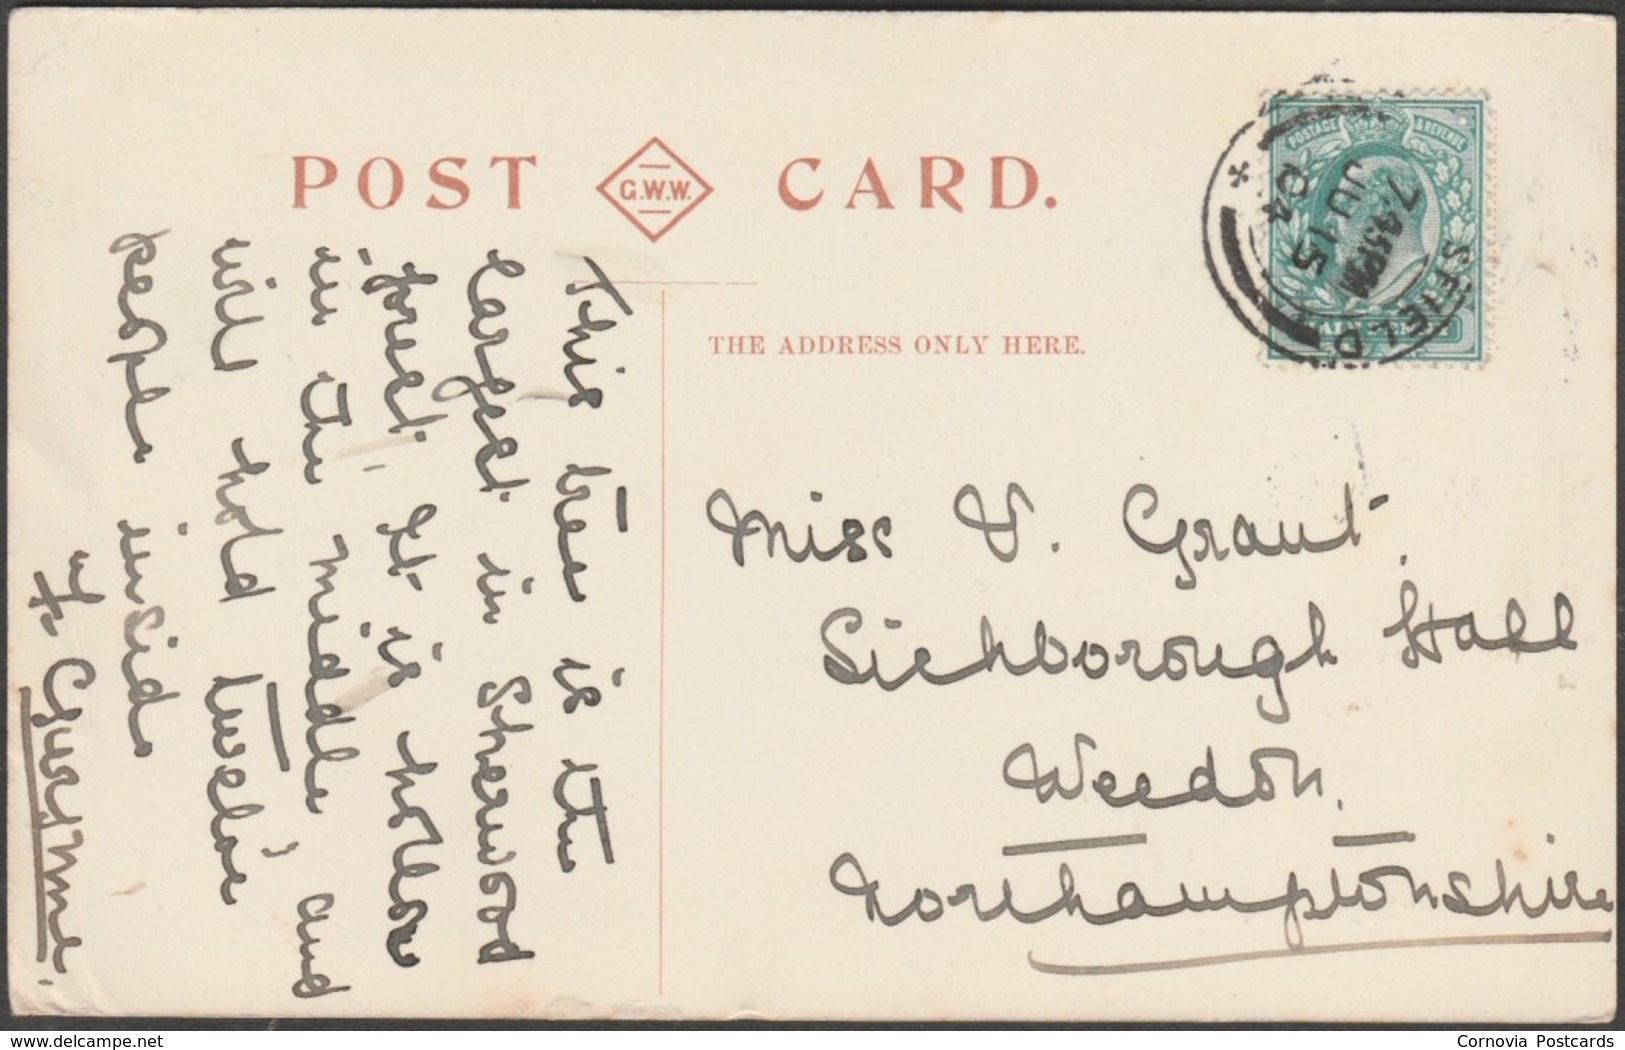 POST G.W.W. CARD.
THE ADDRESS ONLY HERE.
POSTAGE & REVENUE
SFIELD
7.45PM
JU 15
04
This tree is the
largest in Sherwood
forest. It is hollow
in the middle, and
will hold twelve
people inside
Miss V. Grant.
Lichborough Hall
Weedon,
Northamptonshire
delcampe.net
Cornovia Postcards